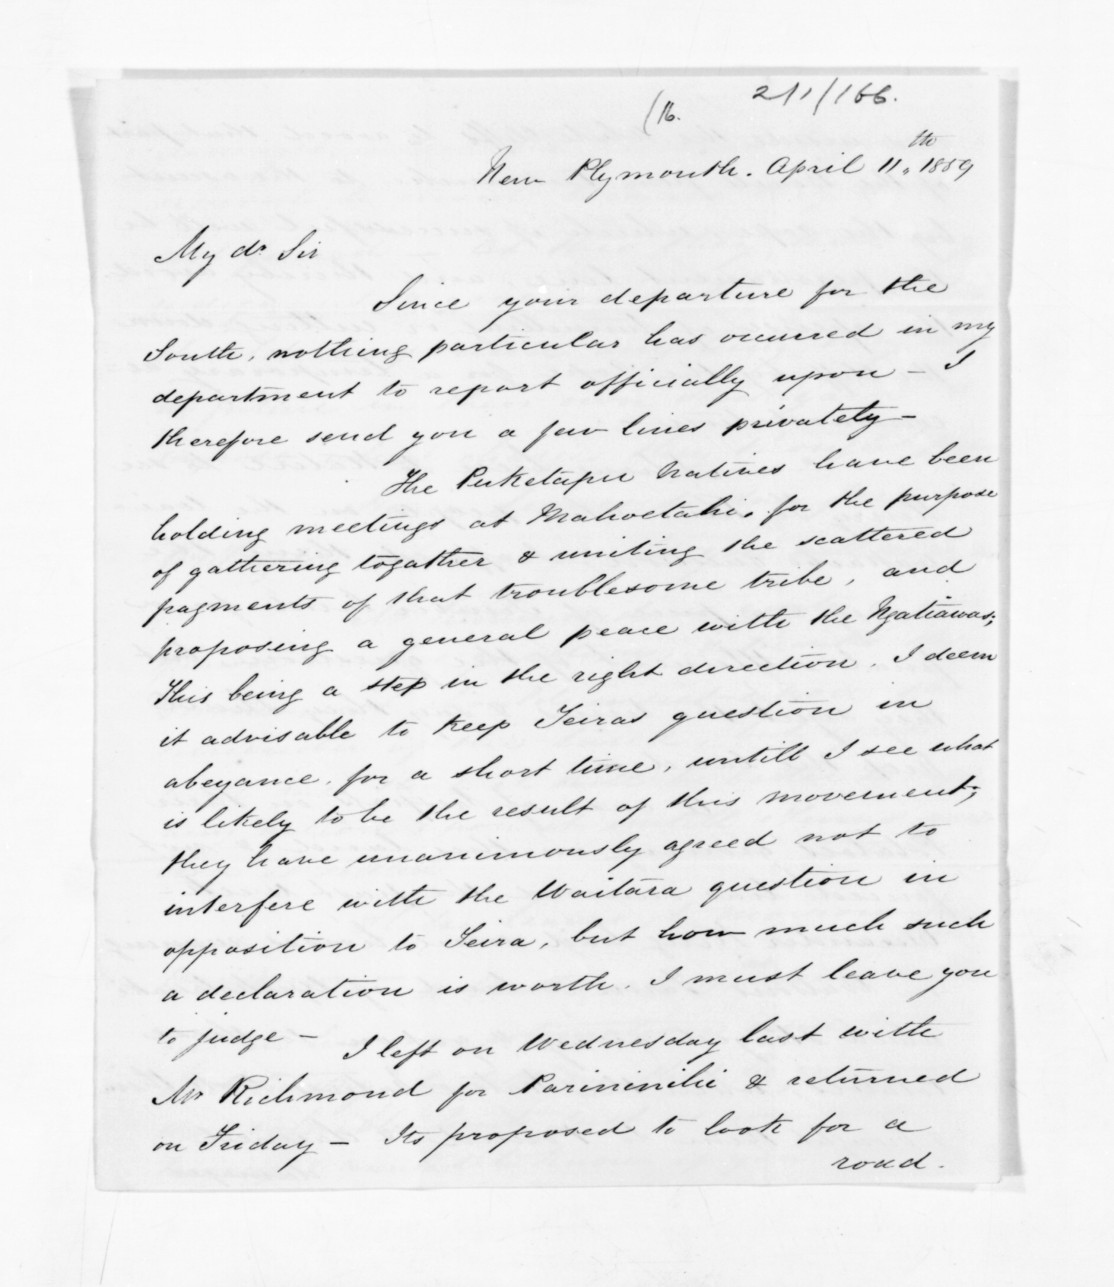 (16.
211/166.
New Plymouth. April 11th 1859
My dr Sir
Since your departure for the
South, nothing particular has occured in my
department to report officially upon - I
therefore send you a few lines privately -
The Puketapu Natives have been
holding meetings at Mahoetahi, for the purpose
of gathering togather & uniting the scattered
fragments of that troublesome tribe, and
proposing a general peace with the Ngatiawas;
this being a step in the right direction, I deem
it advisable to keep Teiras question in
abeyance, for a short time, untill I see what
is likely to be the result of this movement;
they have unanimously agreed not to
interfere with the Waitara question in
opposition to Teira, but how much such
a declaration is worth, I must leave you
to judge -
I left on Wednesday last with
Mr Richmond for Parininihi & returned
on Friday - Its proposed to look for a
road.